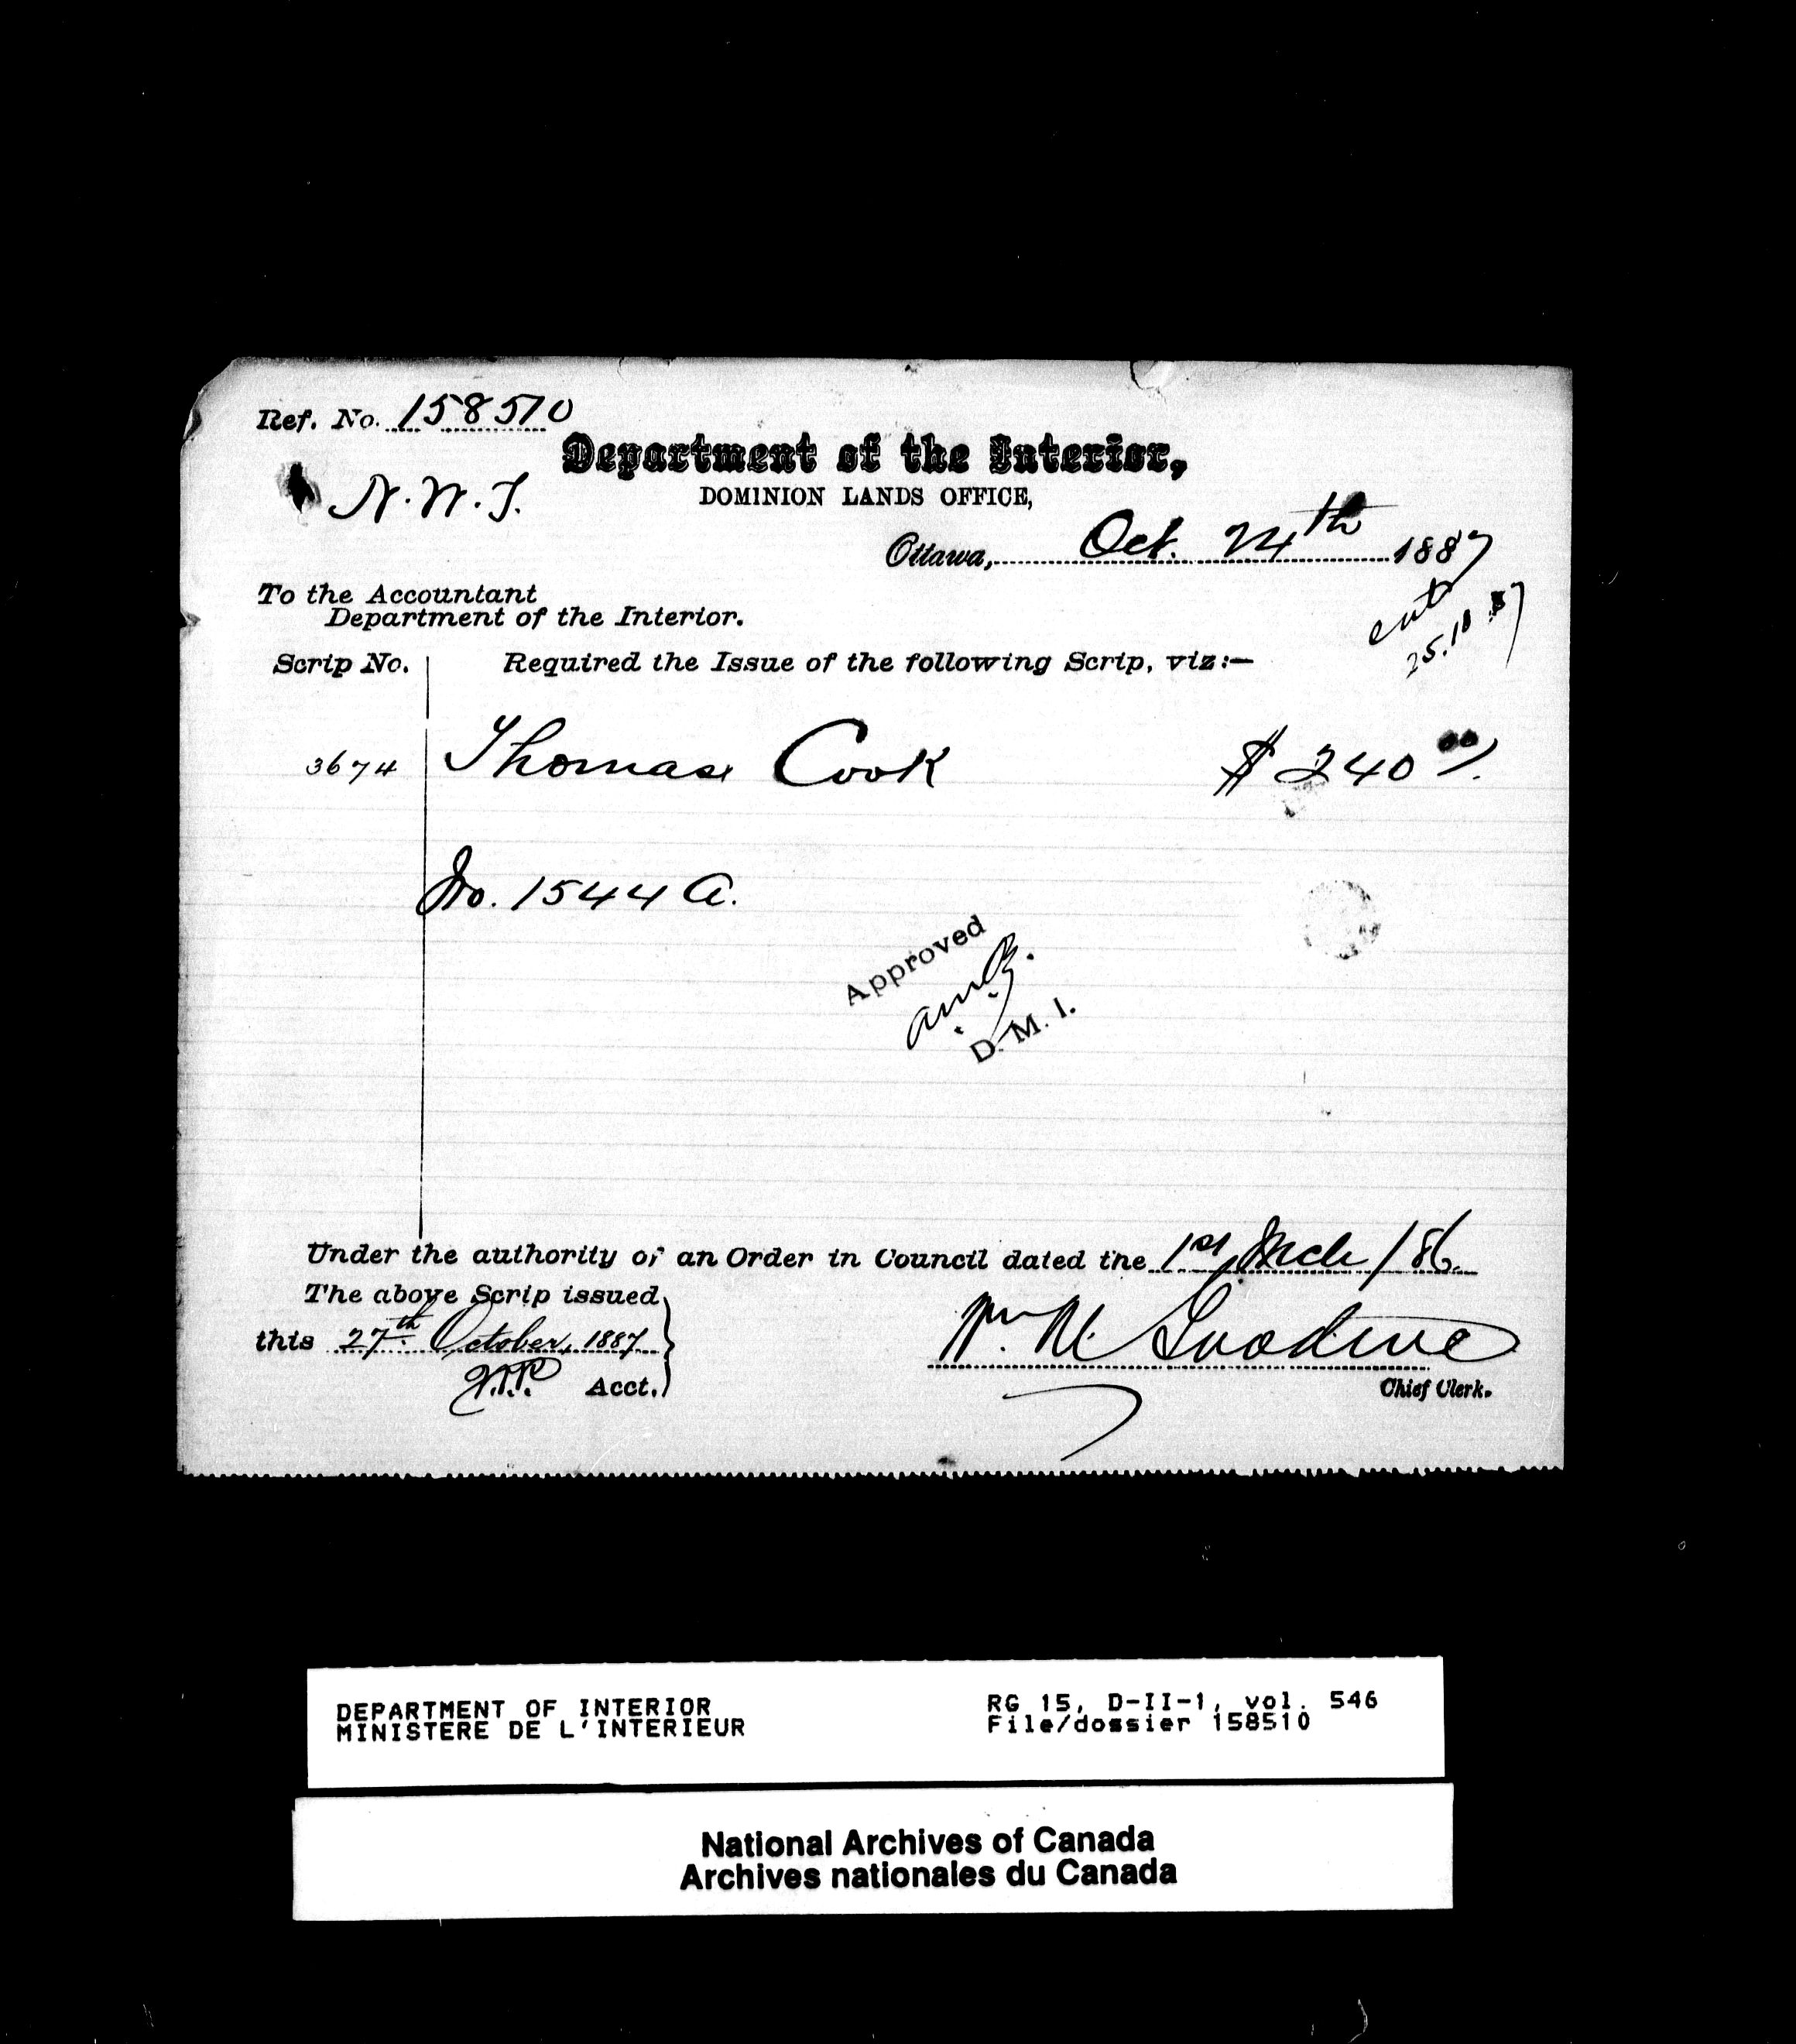 Ref. No. 158510
Department of the Interior,
N.W.T.
DOMINION LANDS OFFICE,
Ottawa, Oct. 24th 1887
To the Accountant
Department of the Interior.
25.10.87
Scrip No. Required the Issue of the following Scrip, viz:—
3674 Thomas Cook $ 240 00/.
No. 1544 A.
Approved
D. M. I.
Under the authority of an Order in Council dated the 1st Mch /86.
The above Scrip issued
this 27th October, 1887
Acct.
Wm M. Goodeve
Chief Clerk.
DEPARTMENT OF INTERIOR RG 15, D-II-1, vol. 546
MINISTERE DE L'INTERIEUR File/dossier 158510
National Archives of Canada
Archives nationales du Canada